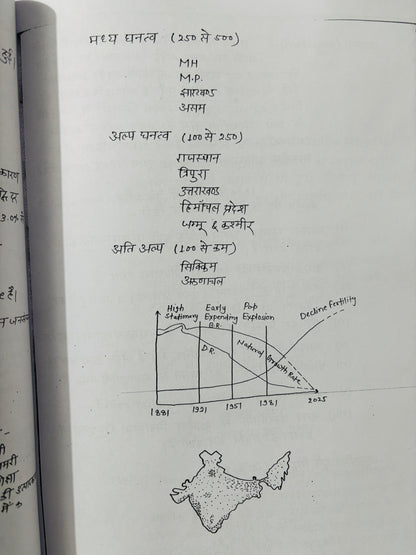 मध्य घनत्व (250 से 500)
MH
M.P.
झारखण्ड
असम
अल्प घनत्व (100 से 250)
राजस्थान
त्रिपुरा
उत्तराखण्ड
हिमाँचल प्रदेश
जम्मू & कश्मीर
अति अल्प (100 से कम)
सिक्किम
अरुणाचल
High Stationary
Early Expending
Pop Explosion
Decline Fertility
B.R.
D.R.
Natural Growth Rate
1881
1921
1951
1981
2025
कारण
3.0%